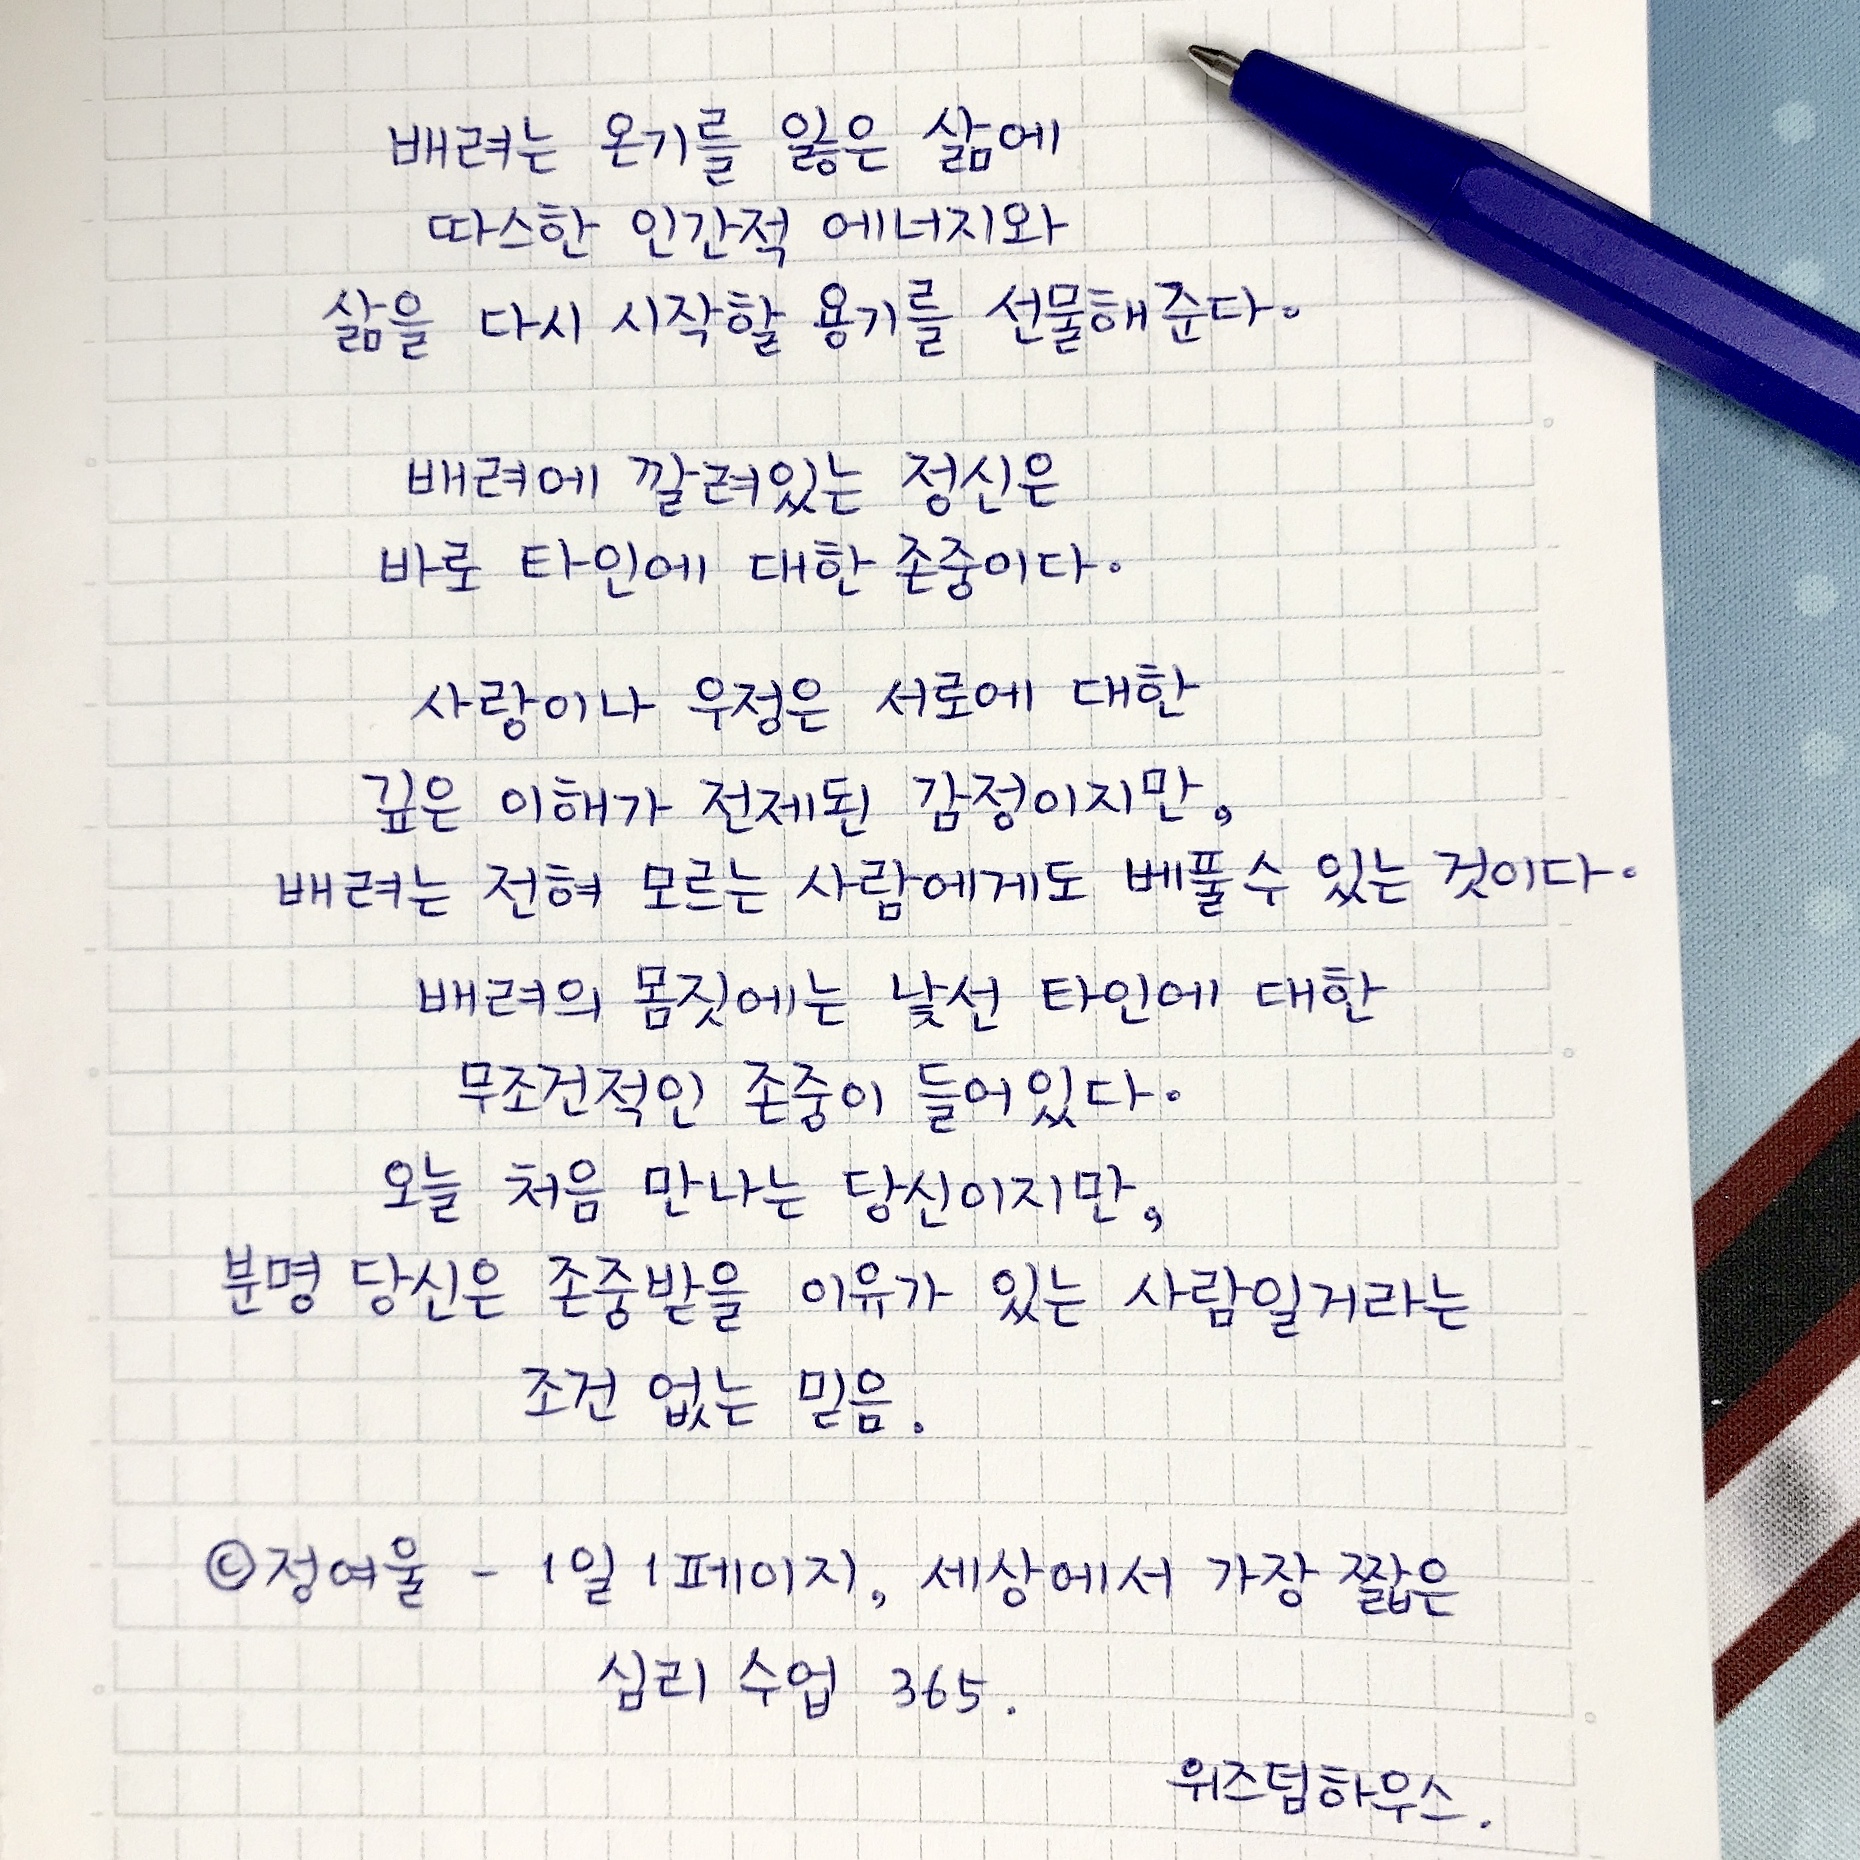 배려는 온기를 잃은 삶에
따스한 인간적 에너지와
삶을 다시 시작할 용기를 선물해준다.
배려에 깔려있는 정신은
바로 타인에 대한 존중이다.
사랑이나 우정은 서로에 대한
깊은 이해가 전제된 감정이지만,
배려는 전혀 모르는 사람에게도 베풀수 있는 것이다.
배려의 몸짓에는 낯선 타인에 대한
무조건적인 존중이 들어있다.
오늘 처음 만나는 당신이지만,
분명 당신은 존중받을 이유가 있는 사람일거라는
조건 없는 믿음.
©정여울 - 1일 1페이지, 세상에서 가장 짧은
심리 수업 365.
위즈덤하우스.